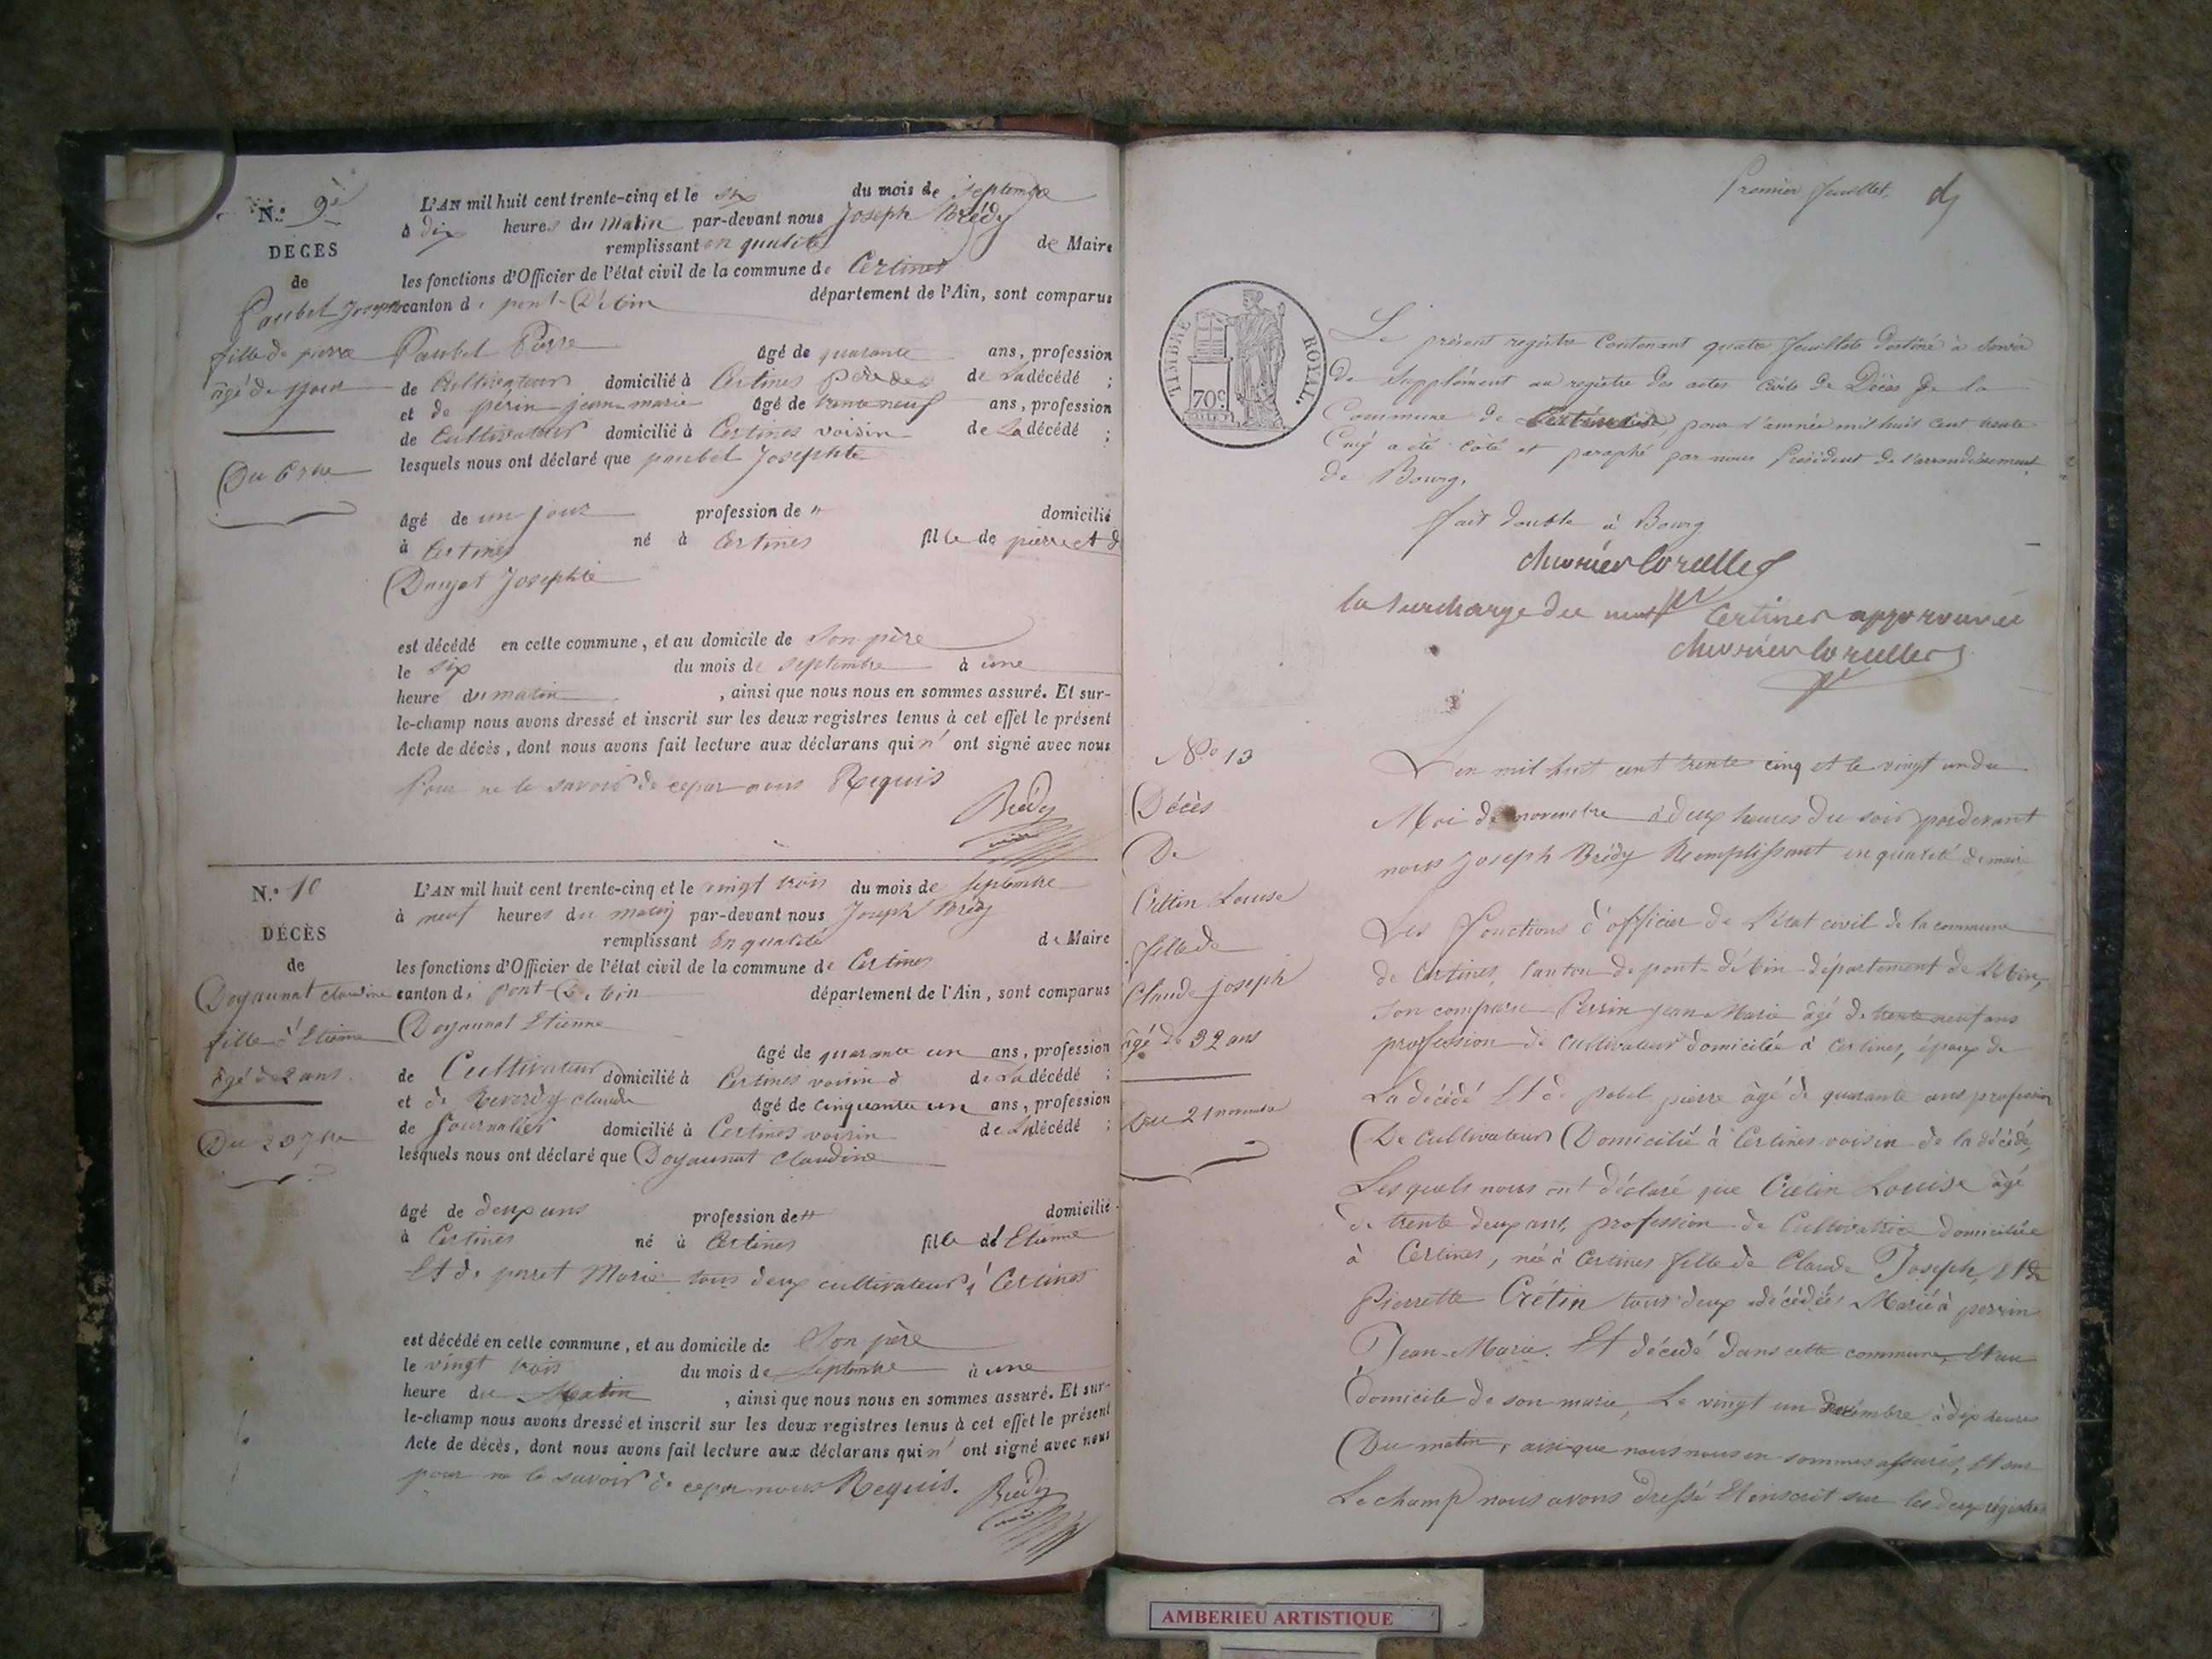 N.° 9è
DECES
de
Paubel Josephte
fille de pierre
âgé de 1 jour
Du 6 7bre
L'AN mil huit cent trente-cinq et le six du mois de septembre
à dix heures du matin par-devant nous Joseph Brédy
remplissant en qualité de Maire
les fonctions d'Officier de l'état civil de la commune de Certines
canton de pont-d'Ain département de l'Ain, sont comparus
Paubel Pierre âgé de quarante ans, profession
de Cultivateur domicilié à Certines père de de La décédé ;
et de périn jean-marie âgé de trente neuf ans, profession
de Cultivateur domicilié à Certines voisin de La décédé ;
lesquels nous ont déclaré que paubel Josephte
âgé de un jour profession de " domicilié
à Certines né à Certines fille de pierre et d
Danjat Josephte
est décédé en celle commune, et au domicile de Son père
le six du mois de septembre à une
heure du matin , ainsi que nous nous en sommes assuré. Et sur-
le-champ nous avons dressé et inscrit sur les deux registres tenus à cet effet le présent
Acte de décès, dont nous avons fait lecture aux déclarans qui n' ont signé avec nous
Pour ne le savoir de ce par nous Requis
Brédy
maire
N.° 10
DÉCÈS
de
Doyaunat claudine
fille d'Etienne
âgé de 2 ans
Du 23 7bre
L'AN mil huit cent trente-cinq et le vingt trois du mois de septembre
à neuf heures du matin par-devant nous Joseph Brédy
remplissant En qualité de Maire
les fonctions d'Officier de l'état civil de la commune de Certines
canton de Pont-d'Ain département de l'Ain, sont comparus
Doyaunat Etienne
âgé de quarante un ans, profession
de Cultivateur domicilié à Certines voisin d de La décédé ;
et de Reverdy claude âgé de cinquante un ans, profession
de Journalier domicilié à Certines voisin de La décédé ;
lesquels nous ont déclaré que Doyaunat Claudine
âgé de deux ans profession de " domicilié
à Certines né à Certines fille d'Etienne
Et de perret Marie tous deux cultivateurs à Certines
est décédé en celle commune, et au domicile de Son père
le vingt trois du mois de septembre à une
heure du Matin , ainsi que nous nous en sommes assuré. Et sur-
le-champ nous avons dressé et inscrit sur les deux registres tenus à cet effet le présent
Acte de décès, dont nous avons fait lecture aux déclarans qui n' ont signé avec nous
pour ne le savoir de ce par nous Requis.
Brédy
maire
Premier feuillet.
TIMBRE ROYAL.
70c
Le présent registre Contenant quatre feuillets destiné à servir
de Supplément au registre des actes Civils de Décès de la
Commune de Certines, pour l'année mil huit cent trente
Cinq a été côté et paraphé par nous Président de l'arrondissement
de Bourg.
fait double à Bourg
chevrier Corcelles
la surcharge du mot Certines approuvée
chevrier Corcelles
No 13
Décès
De
Crétin Louise
fille de
Claude joseph
âgé de 32 ans
Du 21 novembre
L'an mil huit cent trente cinq et le vingt un du
Moi de novembre à deux heures du soir pardevant
nous Joseph Brédy Remplissant en qualité de maire
Les fonctions d'officier de l'état civil de la commune
de Certines, Canton de pont-d'Ain département de l'Ain,
Son comparu Perrin jean Marie âgé de trente neuf ans
profession de cultivateur domicilié à Certines, époux de
La décédé Et de pobel pierre âgé de quarante ans profession
De cultivateur Domicilié à Certines voisin de la décédé,
Lesquels nous ont déclaré que Crétin Louise âgé
de trente deux ans, profession de Cultivatrice domiciliée
à Certines, né à Certines fille de Claude Joseph, Et de
Pierrette Crétin tous deux décédés, Marié à perrin
Jean-Marie. Et décédé dans cette commune, Et au
domicile de son marie, Le vingt un novembre à dix heures
Du matin, ainsi que nous nous en sommes assurés, Et sur
Le champ nous avons dressé Et inscrit sur les deux régistres
AMBERIEU ARTISTIQUE